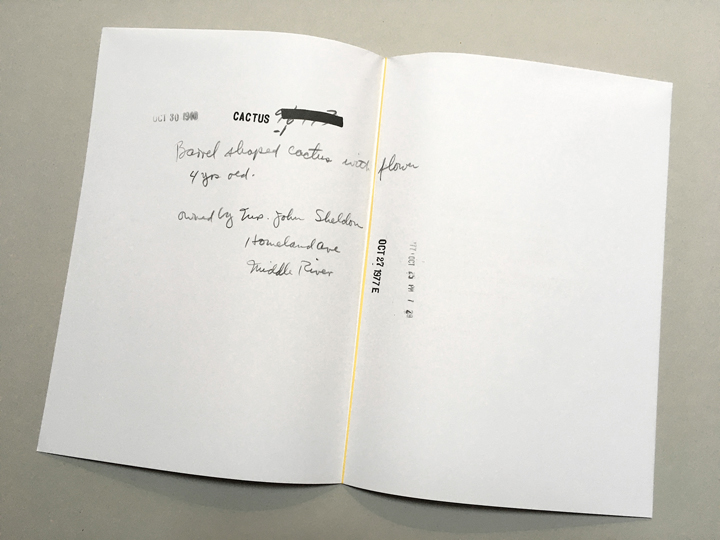 OCT 30 1960
CACTUS
Barrel shaped cactus with flower
4 yrs old.
owned by Mrs. John Sheldon
Homeland Ave
Middle River
OCT 27 1977 E
'77 OCT PM 1